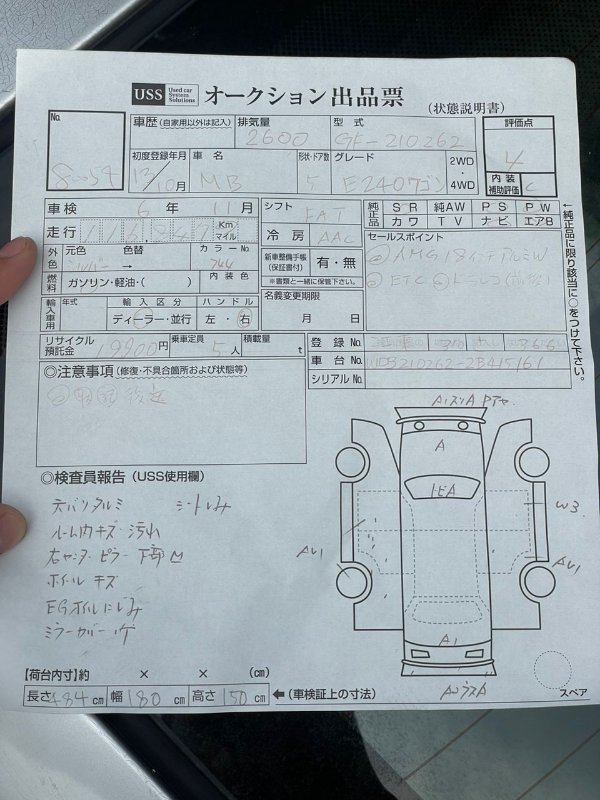 USS Used car System Solutions オークション 出品票 (状態説明書)
No. 80054
車歴 (自家用以外は記入) 排気量 2600 型式 GF-210262 評価点 4
初度登録年月 13/10月 車名 MB 形状・ドア数 5 グレード E240ワゴン 2WD・4WD 内装補助評価 C
車検 6年 11月 シフト FAT 純正品 S・R 純AW P・S P・W
走行 Km マイル 冷房 AAC カワ TV ナビ エアB
外色 元色 シルバー 色替 → カラーNo. 744
セールスポイント
AMG18インチアルミW
ETC
燃料 ガソリン・軽油・( ) 内装色
新車整備手帳 (保証書付) 有・無
※書類と一緒に保管下さい。
輸入車用 年式 輸入区分 ディーラー・並行 ハンドル 左・右
名義変更期限 月 日
リサイクル預託金 19900円 乗車定員 5人 積載量 t
登録No.
車台No. WDB210262-2B415161
シリアルNo.
←純正品に限り該当に○をつけて下さい。
◎注意事項 (修復・不具合箇所および状態等)
◎検査員報告 (USS使用欄)
天バリタルミ シートしみ
ルーム内キズ・汚れ
ピラー 下部
ホイール キズ
EGオイルにじみ
ミラーカバー
A
トビA
W3
AU1
AU1
A1
スペア
【荷台内寸】約 × × (cm)
長さ 484 cm 幅 180 cm 高さ 150 cm ←(車検証上の寸法)